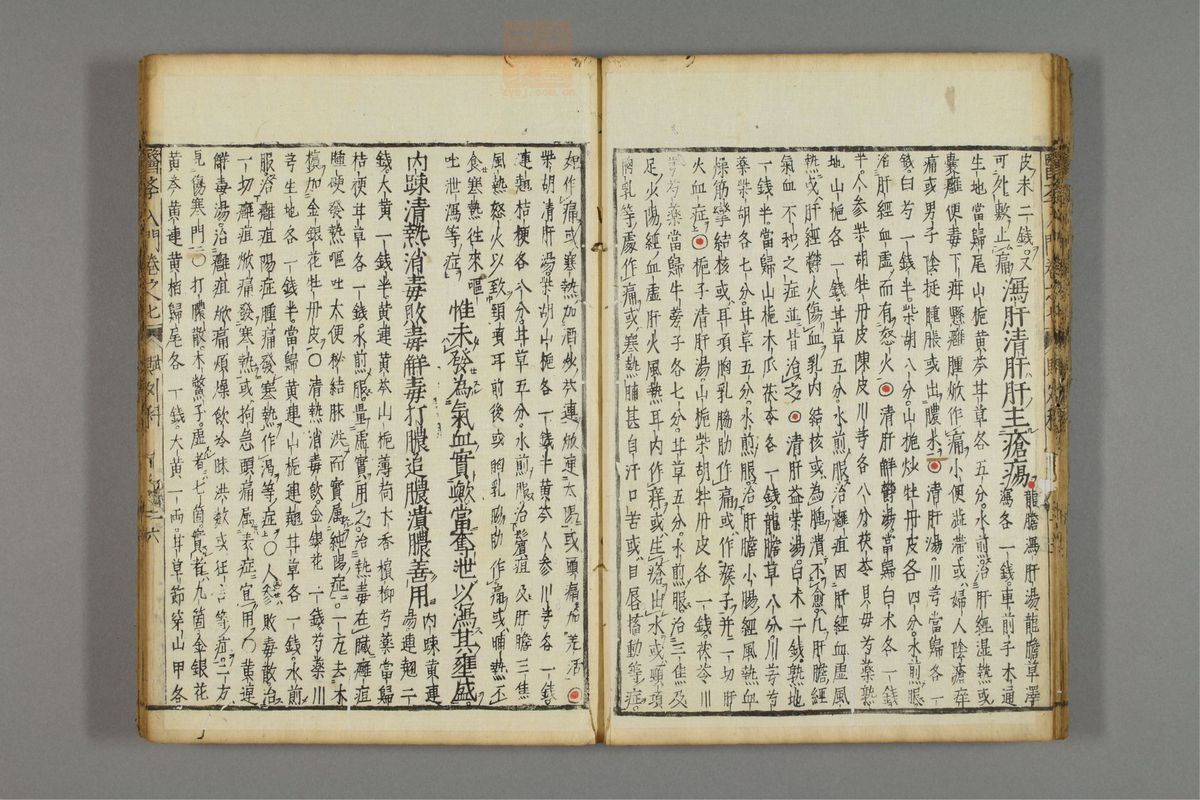 皮末二錢又
可外敷止痛瀉肝清肝肝主瘡瘍龍膽瀉肝湯龍膽草澤瀉各一錢車前子木通
生地當歸尾山梔黃芩甘草各五分水煎治肝經濕熱或
囊癰便毒下疳懸癰腫焮作痛小便澁滯或婦人陰瘡痒
痛或男子陰挺腫脹或出膿水清肝湯川芎當歸各一
錢白芍一錢半柴胡八分山梔炒牡丹皮各四分水煎服
治肝經血虛而有怒火清肝解鬱湯當歸白朮各一錢
半人參柴胡牡丹皮陳皮川芎各八分茯苓貝母芍藥熟
地山梔各一錢甘草五分水煎服治癰疽因肝經血虛風
熱或肝經鬱火傷血乳內結核或為腫潰不愈凡肝膽經
氣血不和之症並皆治之清肝益榮湯白朮二錢熟地
一錢半當歸山梔木瓜茯苓各一錢龍膽草八分川芎芍
藥柴胡各七分甘草五分水煎服治肝膽小腸經風熱血
燥筋攣結核或耳項胸乳脇肋作痛或作瘊子并一切肝
火血症梔子清肝湯山梔柴胡牡丹皮各一錢茯苓川
芎芍藥當歸牛蒡子各七分甘草五分水煎服治三焦及
足少陽經血虛肝火風熱耳內作痒或生瘡出水或頸項
胸乳等處作痛或寒熱晡甚自汗口苦或目唇搐動等症
如作痛或寒熱加酒炒芩連焮連太陽或頭痛加羌活
柴胡清肝湯柴胡山梔各一錢半黃芩人參川芎各一錢
連翹桔梗各八分甘草五分水煎服治鬢疽及肝膽三焦
風熱怒火以致頸項耳前後或胸乳脇肋作痛或晡熱不
食寒熱往來嘔吐泄瀉等症惟未發為氣血實歟當奪泄以瀉其壅盛
內踈清熱消毒敗毒解毒打膿追膿潰膿善用內踈黃連湯連翹二
錢大黃一錢半黃連黃芩山梔薄荷木香檳榔芍藥當歸
桔梗甘草各一錢水煎服量虛實用之治三熱毒在臟癰疽
腫硬發熱嘔吐大便秘結脉洪而實属純陽症一方去木
檳加金銀花牡丹皮○清熱消毒飲金銀花一錢芍藥川
芎生地各一錢半當歸黃連山梔連翹甘草各一錢水煎
服治癰疽陽症腫痛發寒熱作渴等症○人參敗毒散治
一切癰疽焮痛發寒熱或拘急頭痛属表症宜用○黃連
解毒湯治癰疽焮痛煩燥飲冷脉洪數或狂等症二方
見傷寒門○打膿散木鱉子虛者七箇實者九箇金銀花
黃芩黃連黃栢歸尾各一錢大黃一兩甘草節穿山甲各
醫學入門卷之七